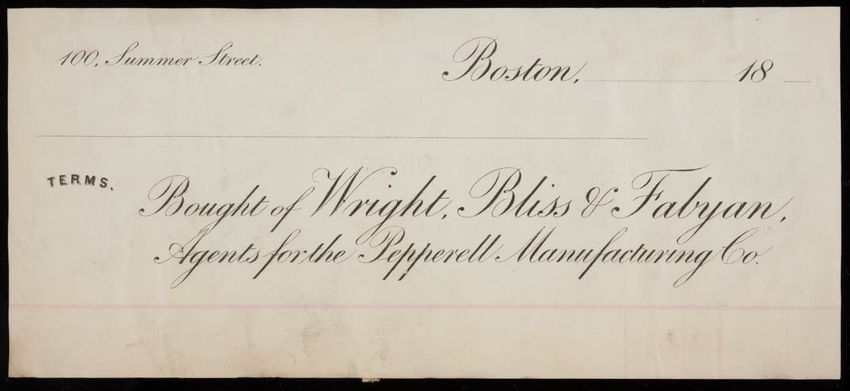 100, Summer Street.
Boston, 18
TERMS.
Bought of Wright, Bliss & Fabyan,
Agents for the Pepperell Manufacturing Co.